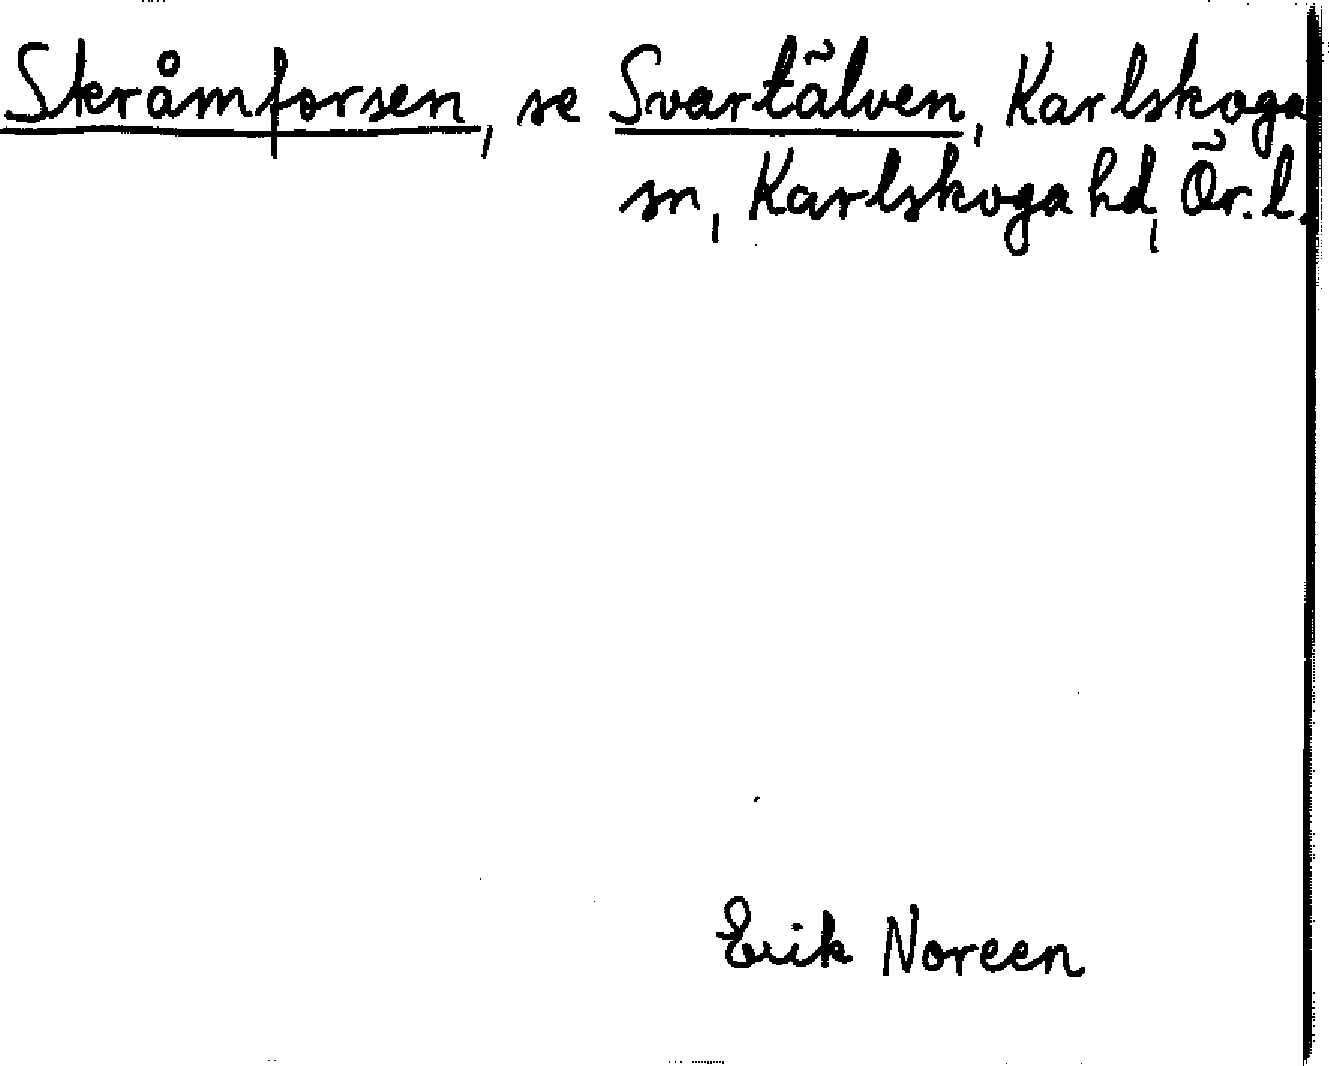 Skråmforsen, se Svartälven, Karlskoga
sn, Karlskoga hd, Ör. l.
Erik Noreen